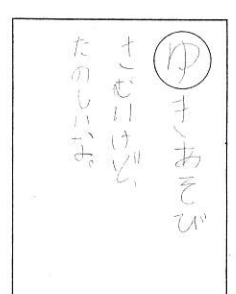 ゆきあそび
さむいけど、
たのしいな。